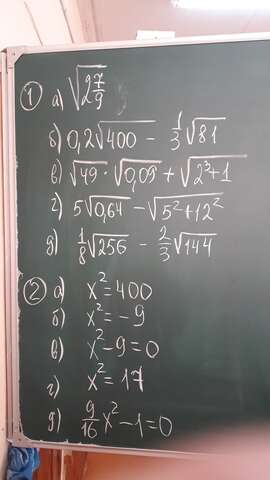 ① а) √2 7/9
б) 0,2√400 − 1/3√81
в) √49 · √0,09 + √2³+1
г) 5√0,64 − √5²+12²
д) 1/8√256 − 2/3√144
② а) x²=400
б) x²=−9
в) x²−9=0
г) x²=17
д) 9/16x²−1=0